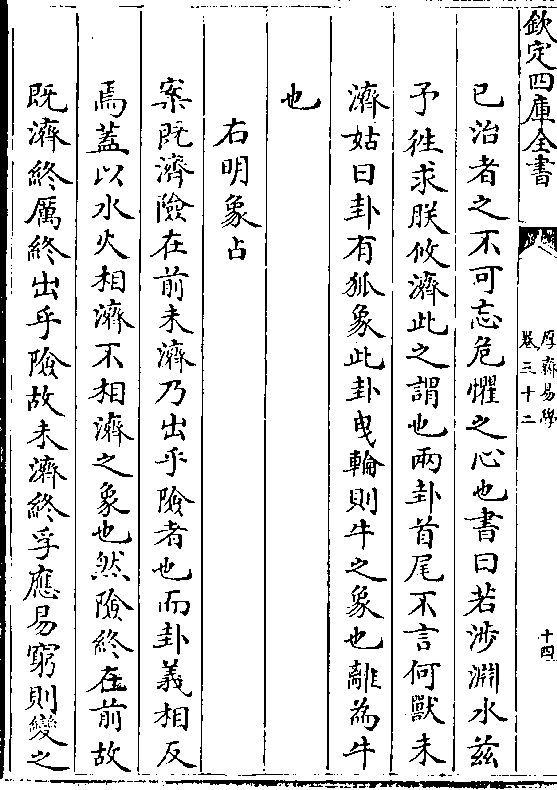 欽定四庫全書
厚齋易學
卷三十二
十四
已治者之不可忘危懼之心也書曰若涉淵水兹
予往求朕攸濟此之謂也兩卦首尾不言何獸未
濟姑曰卦有狐象此卦曳輪則牛之象也離為牛
也
右明象占
案既濟險在前未濟乃出乎險者也而卦義相反
焉蓋以水火相濟不相濟之象也然險終在前故
既濟終厲終出乎險故未濟終孚應易窮則變之